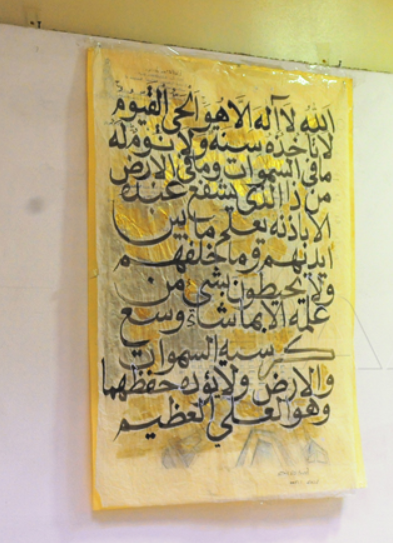 الله لا اله الا هو الحي القيوم
لا تاخذه سنه ولا نوم له
ما في السموات وما في الارض
من ذا الذي يشفع عنده
الا باذنه يعلم ما بين
ايديهم وما خلفهم
ولا يحيطون بشي من
علمه الا بما شاء وسع
كرسيه السموات
والارض ولا يؤده حفظهما
وهو العلي العظيم